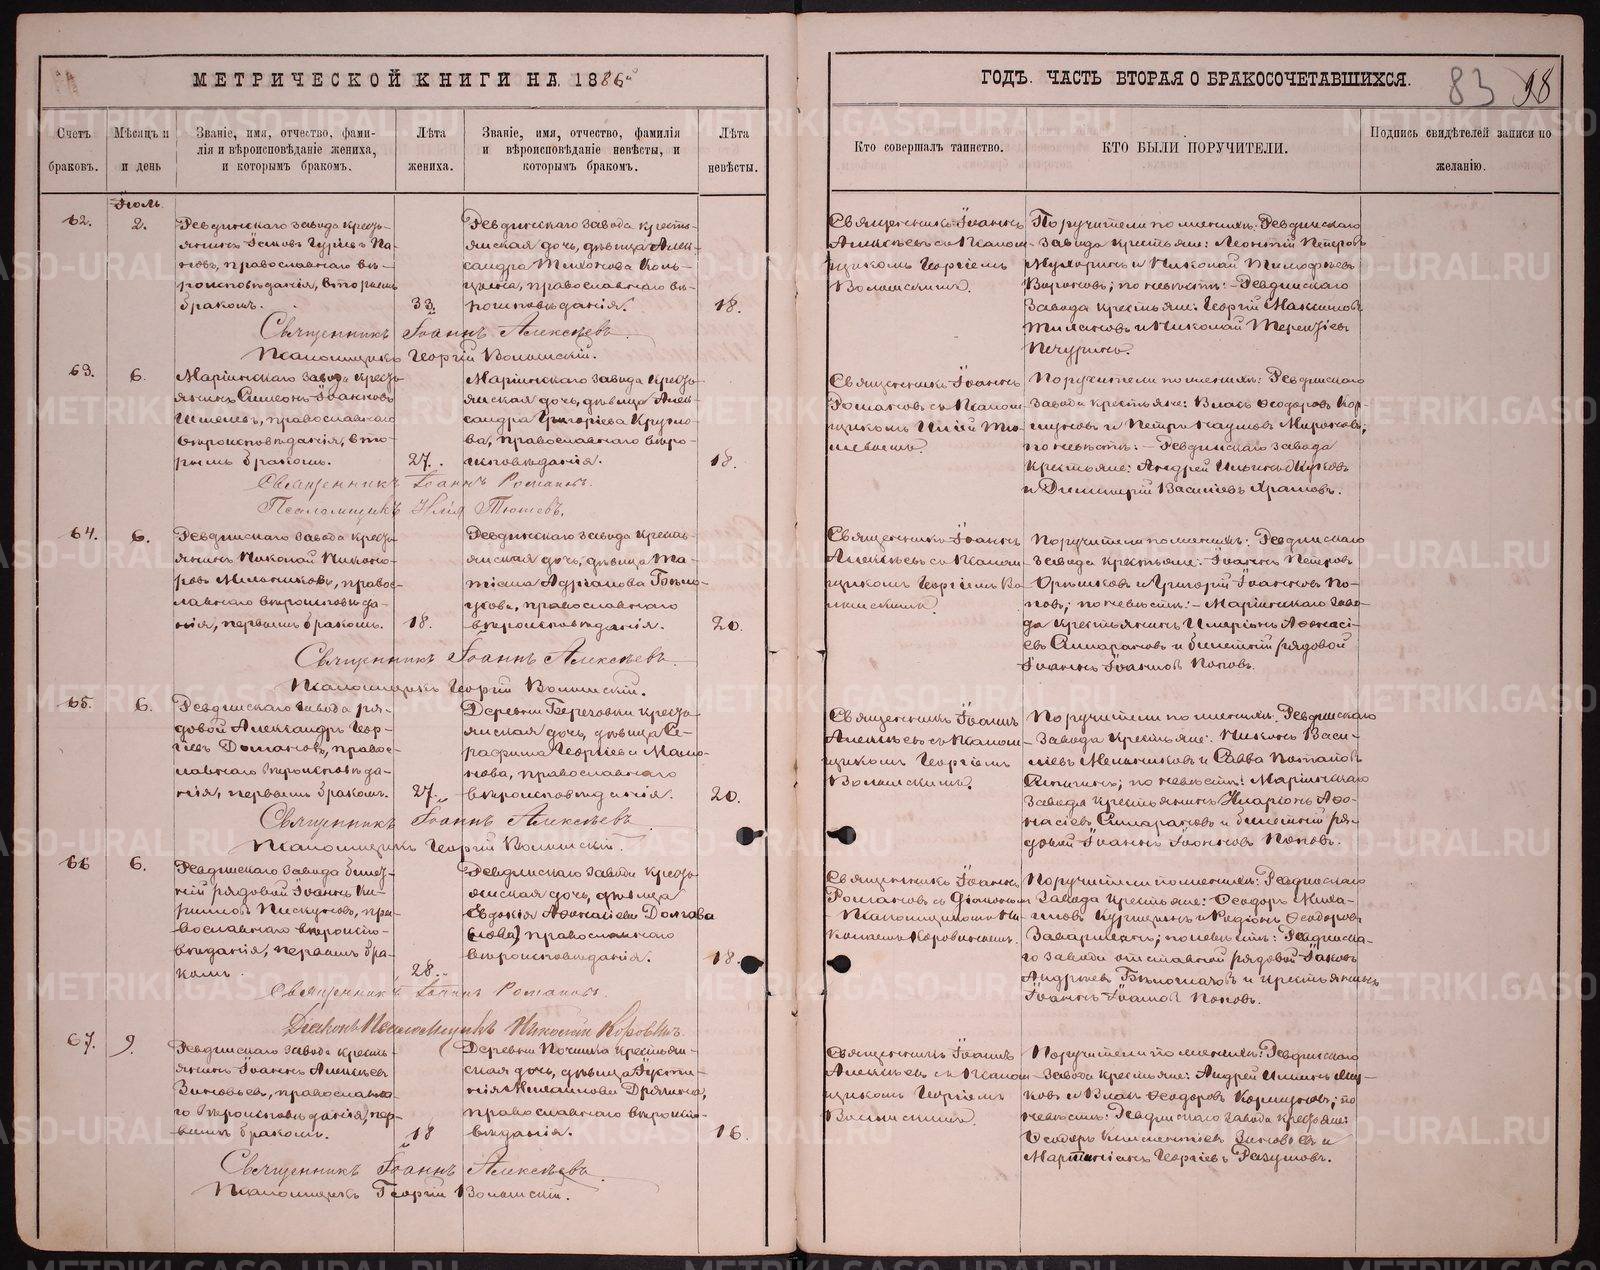 МЕТРИЧЕСКОЙ КНИГИ НА 1886
ГОДЪ. ЧАСТЬ ВТОРАЯ О БРАКОСОЧЕТАВШИХСЯ.
83 98
Счетъ браковъ.
Мѣсяцъ и и день
Званіе, имя, отчество, фами-
лія и вѣроисповѣданіе жениха,
и которымъ бракомъ.
Лѣта
жениха.
Званіе, имя, отчество, фамилія
и вѣроисповѣданіе невѣсты, и
которымъ бракомъ.
Лѣта
невѣсты.
Кто совершалъ таинство.
КТО БЫЛИ ПОРУЧИТЕЛИ.
Подпись свидѣтелей записи по
желанію.
Іюль
62.
2.
Ревдинскаго завода кресть-
янинъ Іаковъ
православнаго вѣ-
роисповѣданія, вторымъ
бракомъ.
33.
Ревдинскаго завода кресть-
янская дочь, дѣвица Алек-
сандра Тихонова
православнаго вѣ-
роисповѣданія.
18.
Священникъ Іоаннъ
Алексѣевъ съ псалом-
щикомъ Георгіемъ
Волынскимъ.
Поручители по женихѣ: Ревдинскаго
завода крестьяне: Леонтій Петровъ
и Николай Тимофѣевъ
по невѣстѣ: Ревдинскаго
завода крестьяне: Георгій Максимовъ
и Николай Терентіевъ
Печуринъ.
Священникъ Іоаннъ Алексѣевъ
Псаломщикъ Георгій Волынскій.
63.
6.
Маріинскаго завода кресть-
янинъ Симеонъ Іоанновъ
православнаго
вѣроисповѣданія, вто-
рымъ бракомъ.
27.
Маріинскаго завода кресть-
янская дочь, дѣвица Алек-
сандра Григорьева Кругло-
ва, православнаго вѣро-
исповѣданія.
18.
Священникъ Іоаннъ
Романовъ съ псалом-
щикомъ Иліей Тю-
шевымъ.
Поручители по женихѣ: Ревдинскаго
завода крестьяне: Власъ Ѳеодоровъ Кор-
шуновъ и Петръ Наумовъ Мироновъ;
по невѣстѣ: Ревдинскаго завода
крестьяне: Андрей Ильинъ
и Димитрій Василіевъ Храмовъ.
Священникъ Іоаннъ Романовъ.
Псаломщикъ Илія Тюшевъ.
64.
6.
Ревдинскаго завода кресть-
янинъ Николай Никано-
ровъ Мельниковъ, право-
славнаго вѣроисповѣда-
нія, первымъ бракомъ.
18.
Ревдинскаго завода кресть-
янская дочь, дѣвица Та-
тіана Адріанова
православнаго
вѣроисповѣданія.
20.
Священникъ Іоаннъ
Алексѣевъ съ псалом-
щикомъ Георгіемъ Во-
лынскимъ.
Поручители по женихѣ: Ревдинскаго
завода крестьяне: Іоаннъ Петровъ
и Григорій Іоанновъ По-
повъ; по невѣстѣ: Маріинскаго заво-
да крестьянинъ Иларіонъ Аѳанасі-
евъ и билетный рядовой
Іоаннъ Іоанновъ Поповъ.
Священникъ Іоаннъ Алексѣевъ.
Псаломщикъ Георгій Волынскій.
65.
6.
Ревдинскаго завода ря-
довой Александръ Геор-
гіевъ православ-
славнаго вѣроисповѣда-
нія, первымъ бракомъ.
27.
Деревни Березовки кресть-
янская дочь, дѣвица Се-
рафима Георгіева Мамо-
нова, православнаго
вѣроисповѣданія.
20.
Священникъ Іоаннъ
Алексѣевъ съ псалом-
щикомъ Георгіемъ
Волынскимъ.
Поручители по женихѣ: Ревдинскаго
завода крестьяне: Никонъ Васи-
ліевъ Мельниковъ и Савва Потаповъ
по невѣстѣ: Маріинскаго
завода крестьянинъ Иларіонъ Аѳа-
насіевъ и билетный ря-
довой Іоаннъ Іоанновъ Поповъ.
Священникъ Іоаннъ Алексѣевъ
Псаломщикъ Георгій Волынскій.
66
6.
Ревдинскаго завода билет-
ный рядовой Іоаннъ Ки-
рилловъ Пискуновъ, пра-
вославнаго вѣроиспо-
вѣданія, первымъ бра-
комъ.
28.
Ревдинскаго завода кресть-
янская дочь, дѣвица
Евдокія Аѳанасіева
православнаго
вѣроисповѣданія.
18.
Священникъ Іоаннъ
Романовъ съ діакономъ
псаломщикомъ Ни-
колаемъ Коровинымъ.
Поручители по женихѣ: Ревдинскаго
завода крестьяне: Ѳеодоръ Миха-
иловъ и Родіонъ Ѳеодоровъ
по невѣстѣ: Ревдинска-
го завода отставной рядовой Іаковъ
Андреевъ и крестьянинъ
Іоаннъ Іоанновъ Поповъ.
Священникъ Іоаннъ Романовъ.
Діаконъ Псаломщикъ Николай Коровинъ.
67.
9.
Ревдинскаго завода кресть-
янинъ Іоаннъ Алексѣевъ
Зиновьевъ, православна-
го вѣроисповѣданія, пер-
вымъ бракомъ.
18
Деревни Починка крестьян-
ская дочь, дѣвица Іусти-
нія Дрягина,
православнаго вѣроиспо-
вѣданія.
16.
Священникъ Іоаннъ
Алексѣевъ съ псалом-
щикомъ Георгіемъ
Волынскимъ.
Поручители по женихѣ: Ревдинскаго
завода крестьяне: Андрей Ильинъ
и Власъ Ѳеодоровъ Коршуновъ; по
невѣстѣ: Ревдинскаго завода крестьяне:
Ѳеодоръ Климентіевъ Зиновьевъ и
Мартиніанъ Георгіевъ Разумовъ.
Священникъ Іоаннъ Алексѣевъ.
Псаломщикъ Георгій Волынскій.
METRIKI.GASO-URAL.RU